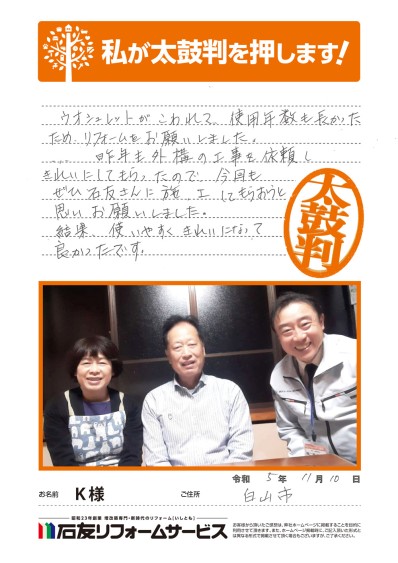 私が太鼓判を押します!
ウオシュレットがこわれて、使用年数も長かった
ため、リフォームをお願いしました。
昨年も外構の工事を依頼し
きれいにしてもらったので、今回も
ぜひ石友さんに施工してもらおうと
思いお願いしました。
結果、使いやすくきれいになって
良かったです。
太鼓判
令和 5年 11月 10日
お名前 K様 ご住所 白山市
昭和23年創業 増改築専門・新時代のリフォーム[いしとも]
石友リフォームサービス